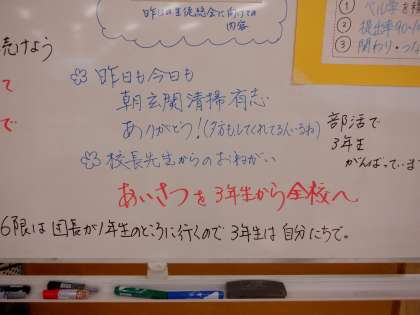 昨日の生徒総会に向けての
内容
① ベル率を
② 提出率90
③ 関わり・つな
続けよう
て
で
昨日も今日も
朝玄関清掃有志
ありがとう!(夕方もしてくれてる人いるね)
校長先生からのおねがい
部活で
3年生
がんばっています
あいさつを3年生から全校へ
6限は団長が1年生のところに行くので3年生は自分たちで。